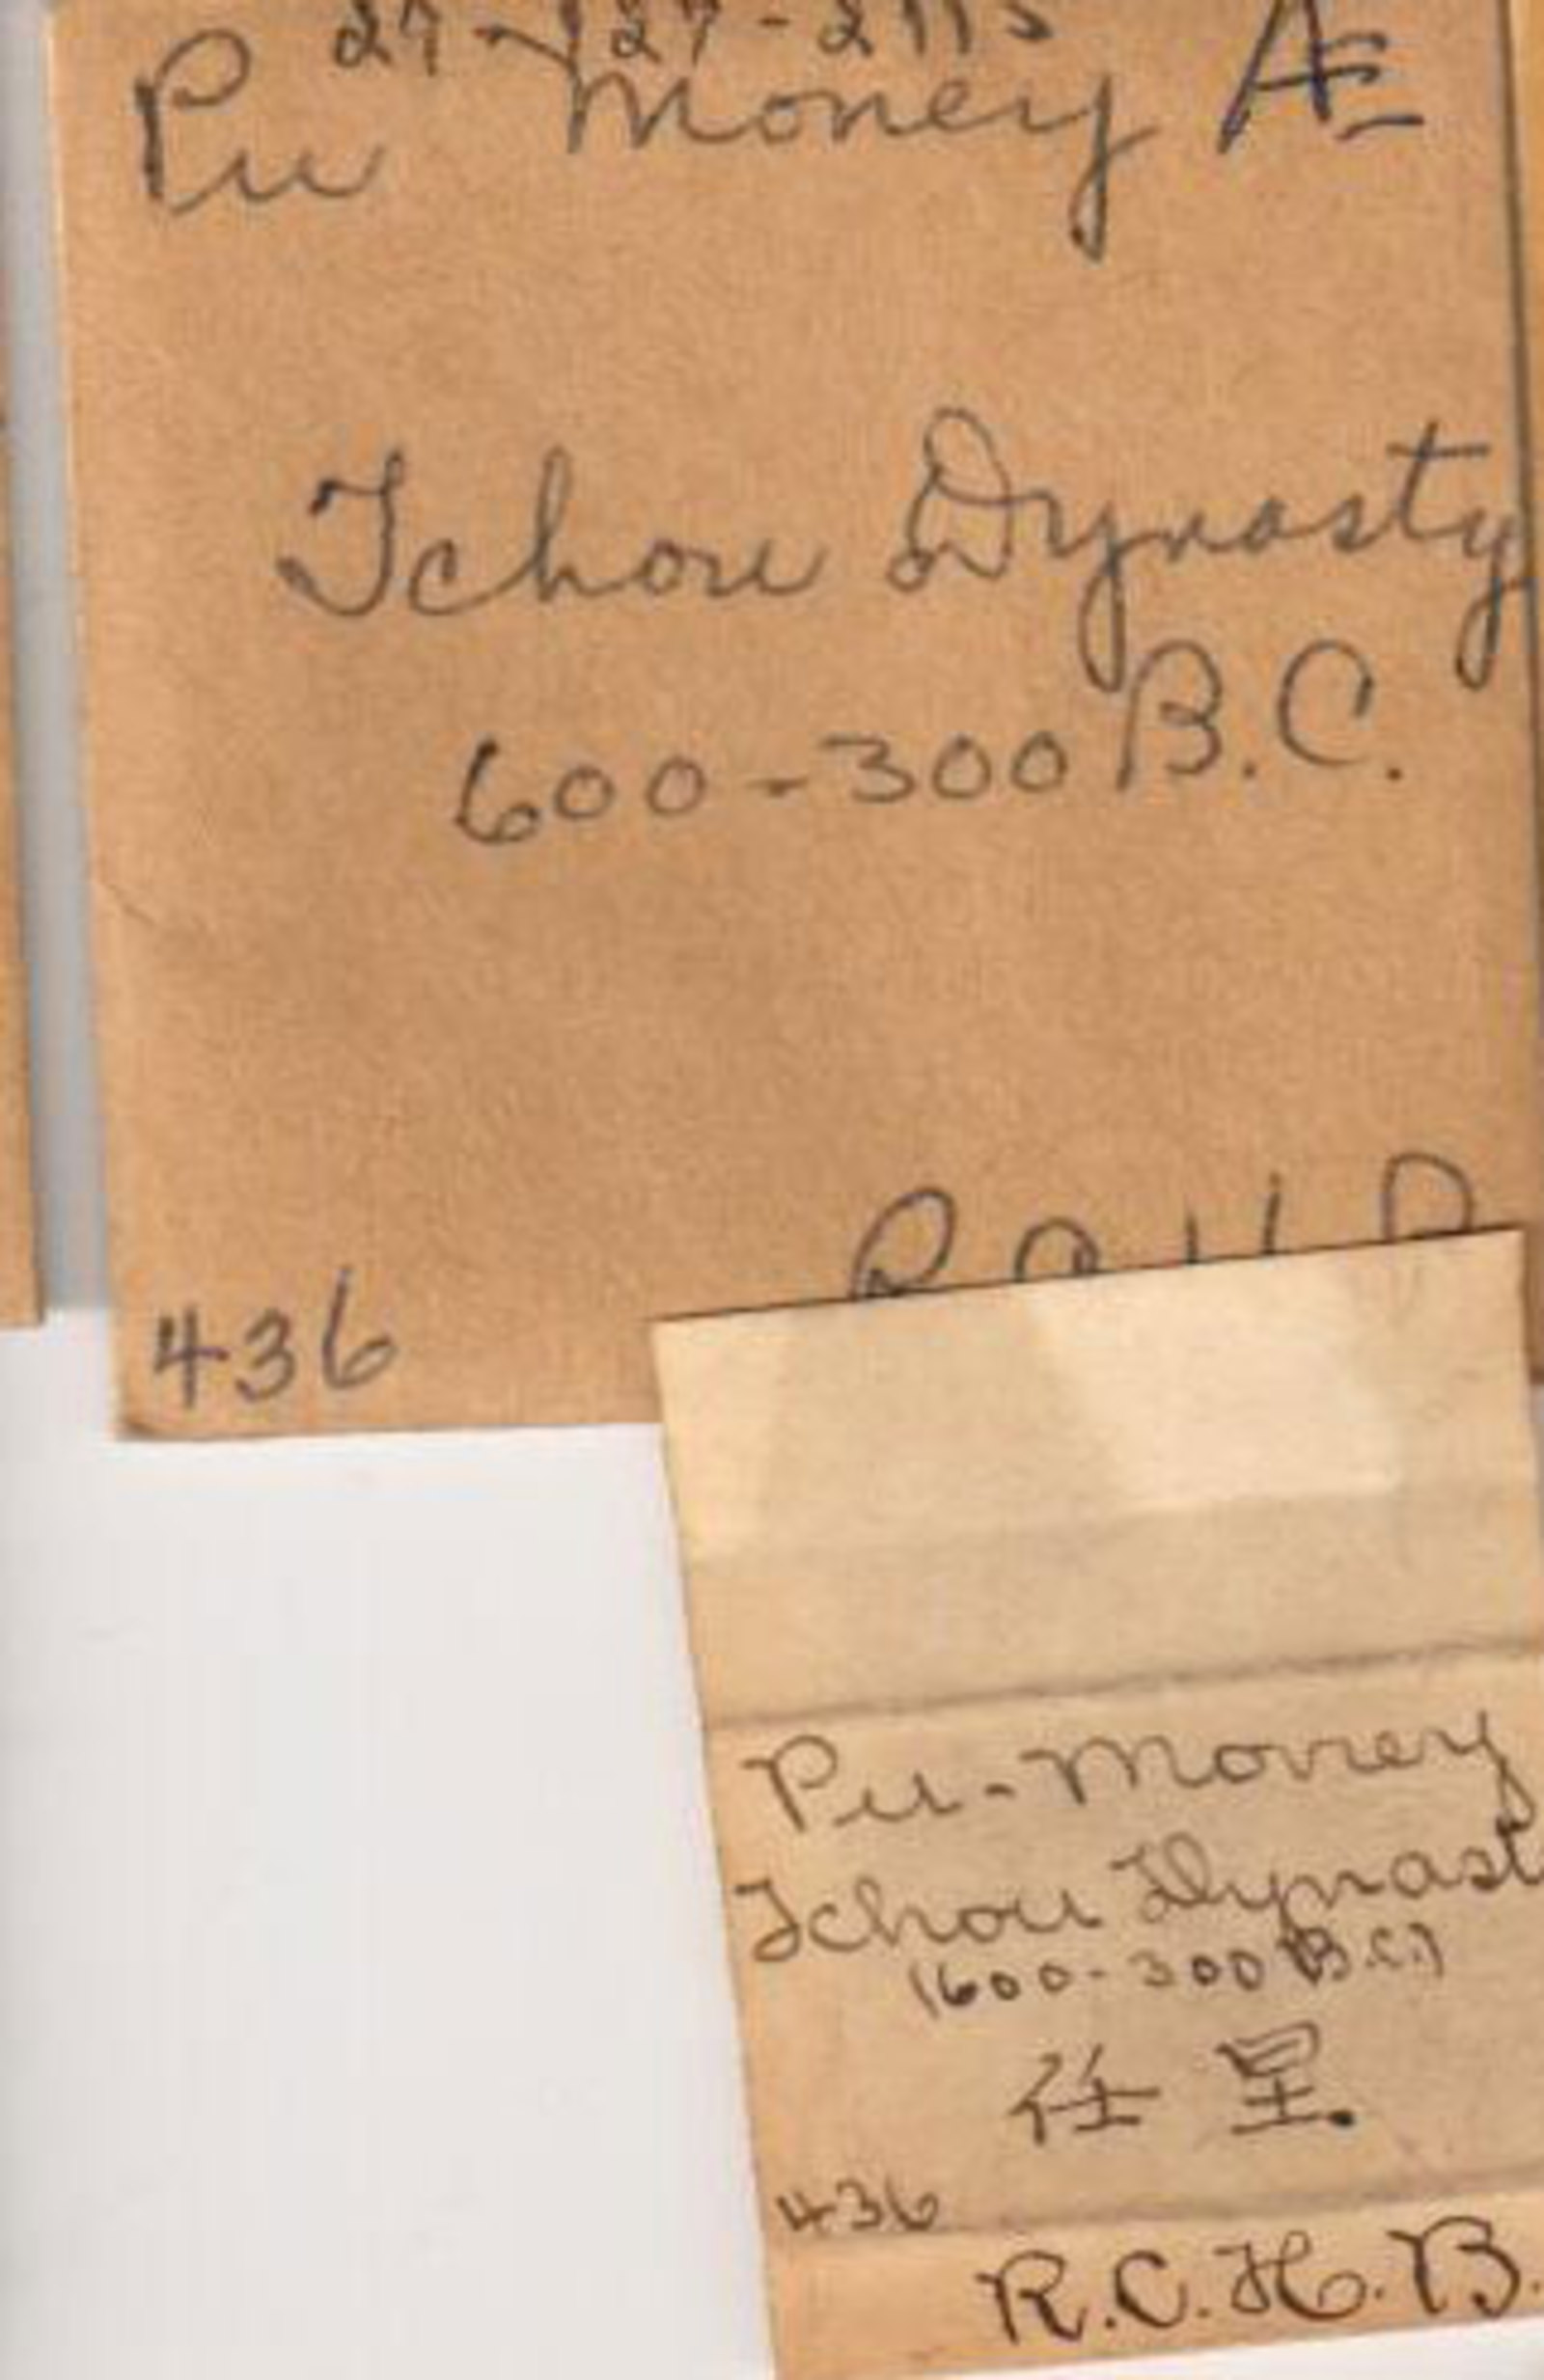 Pu Money Æ
Tchou Dynasty
600-300 B.C.
436
Pu-Money
Tchou Dynast
(600-300 B.C.)
任 里.
436
R.C.H.B.